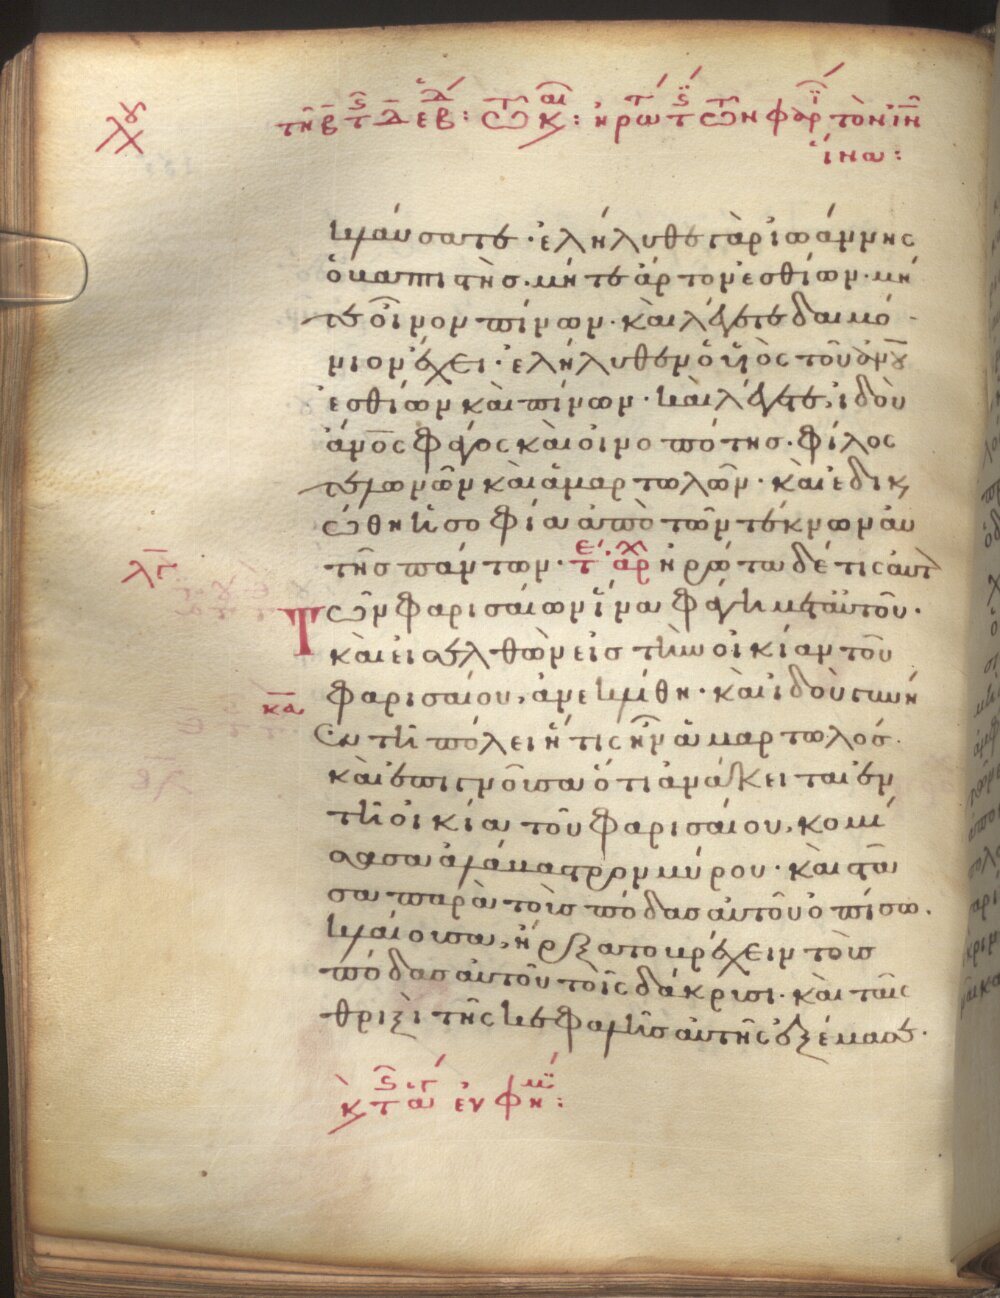 κλαύσατε· ἐλήλυθε γὰρ ἰωάννης
ὁ βαπτιστὴς. μήτε ἄρτον ἐσθίων· μή
τε οἶνον πίνων· καὶ λέγετε δαιμό
νιον ἔχει· ἐλήλυθεν ὁ ὑιὸς τοῦ ἀν̅ο̅υ̅
ἐσθίων καὶ πίνων· καὶ λέγετε, ἰδοὺ
ἄν̅ο̅ς φάγος καὶ οἰνοπότησ. φίλος
τελωνῶν καὶ ἁμαρτωλῶν· καὶ ἐδικαι
ώθη ἡ σοφία ἀπὸ τῶν τέκνων αὐ
τῆσ πάντων· ἠρώτα δέ τις αὐτὸν
τῶν φαρισαίων ἵνα φάγη μετ' αὐτοῦ·
καὶ εἰσελθὼν εἰσ τὴν οἰκίαν τοῦ
φαρισαίου, ἀνεκλίθη· καὶ ἰδοὺ γυνὴ
ἐν τῆ πόλει ἥτις ἦν ἁμαρτωλόσ.
καὶ ἐπιγνοῦσα ὅτι ἀνάκειται ἐν
τῆ οἰκία τοῦ φαρισαίου, κομί
σασα ἀλάβαστρον μύρου· καὶ στᾶ
σα παρὰ τοὺσ πόδασ αὐτοῦ ὀπίσω.
κλαίουσα, ἤρξατο βρέχειν τοὺσ
πόδασ αὐτοῦ τοῖς δάκρυσι· καὶ ταῖς
θριξὶ τῆς κεφαλῆσ αὐτῆς ἐξέμασσε·